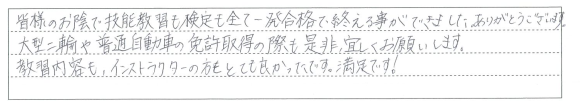 皆様のお陰で技能教習も検定も全て一発合格で終える事ができました。ありがとうございます。
大型二輪や普通自動車の免許取得の際も是非、宜しくお願いします。
教習内容も、インストラクターの方もとても良かったです。満足です!